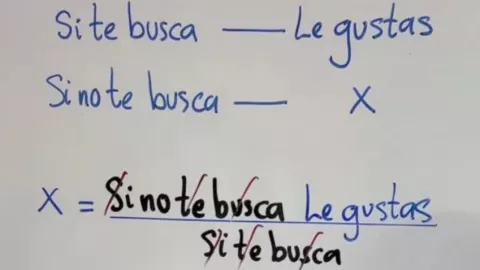 Si te busca — Le gustas
Si no te busca — X
X = Si no te busca Le gustas
Si te busca